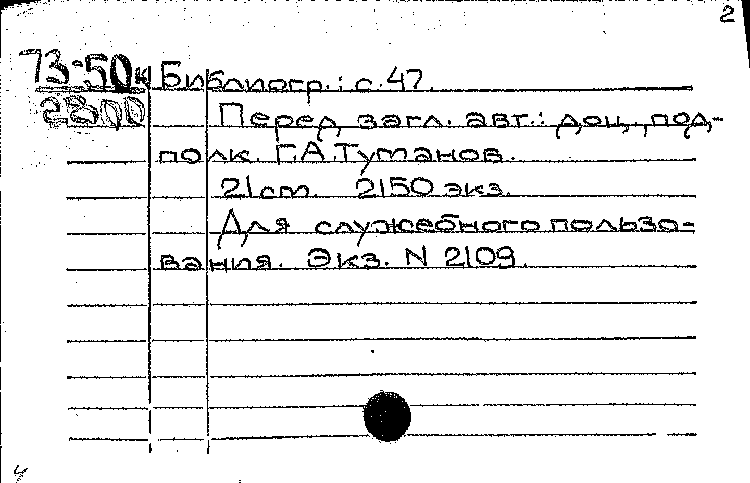 2
73-50к Библиогр.: с. 47.
2300 Перед загл. авт.: доц., под-
полк. Г.А.Туманов.
21 см. 2150 экз.
Для служебного пользо-
вания. Экз. N 2109.